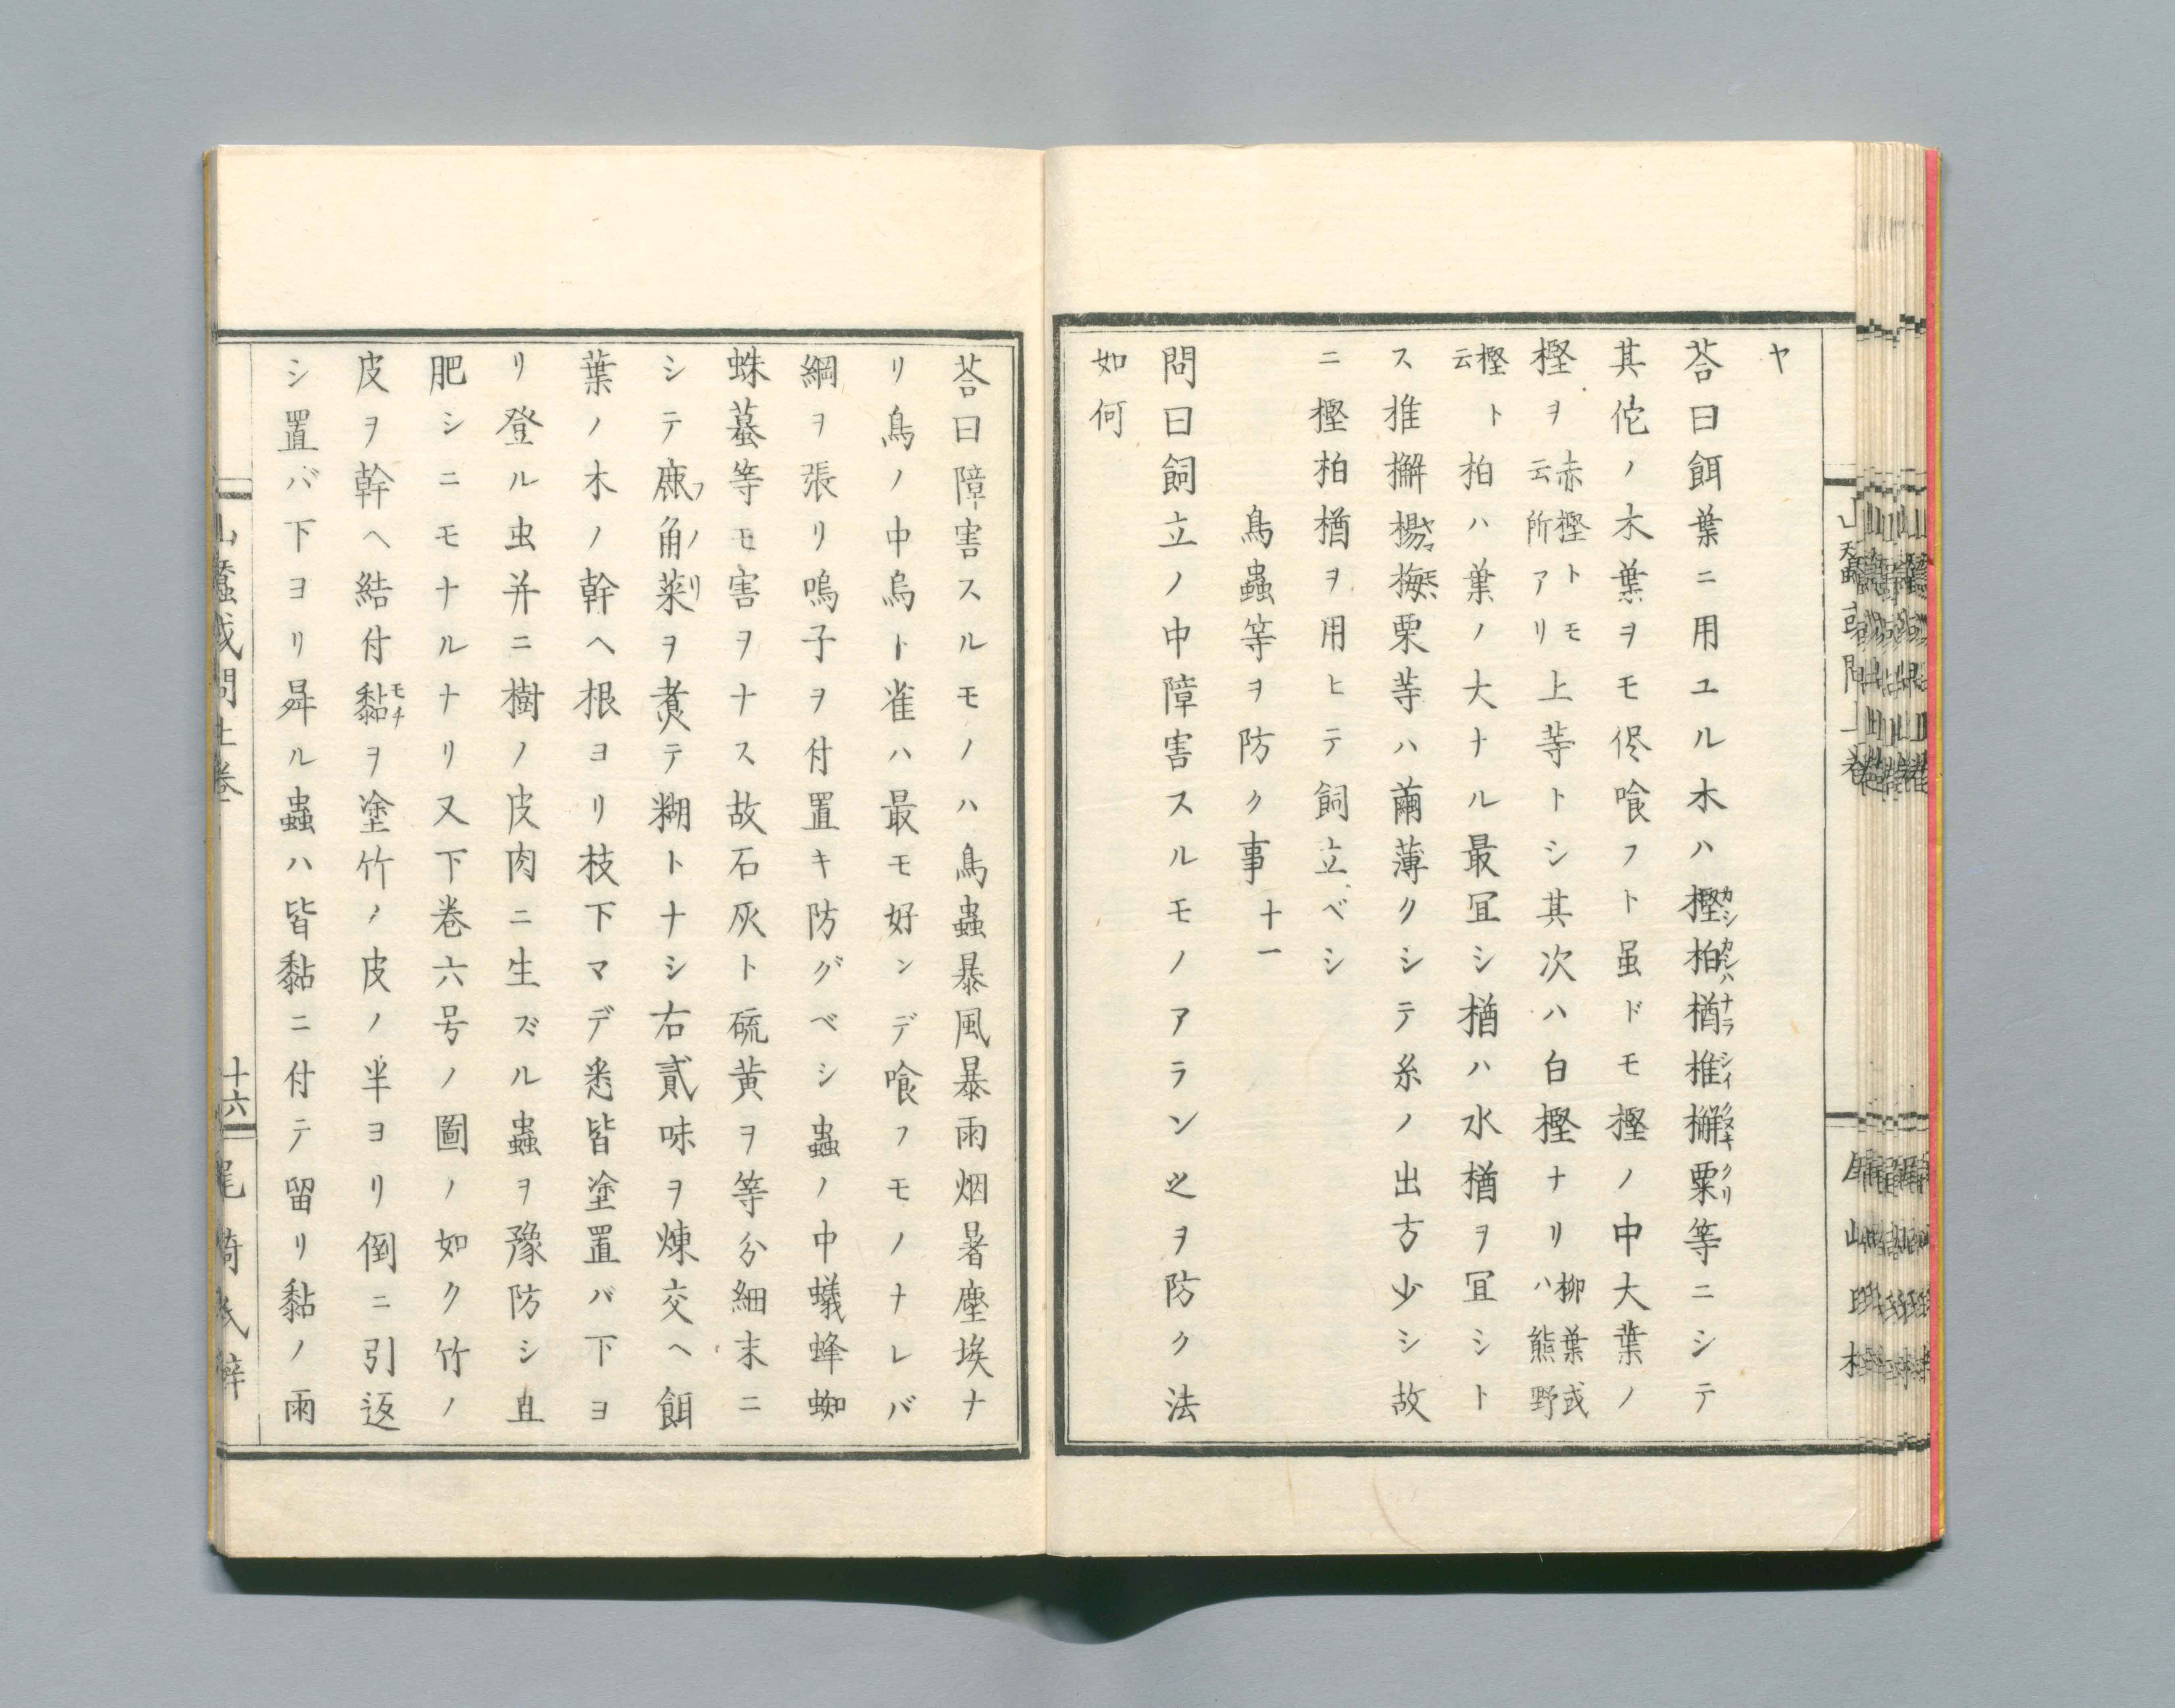 ヤ
荅曰餌葉ニ用ユル木ハ樫柏楢椎檞栗等ニシテ
其佗ノ木葉ヲモ侭喰フト虽ドモ樫ノ中大葉ノ
樫ヲ赤樫トモ云所アリ上等トシ其次ハ白樫ナリ柳葉或ハ熊野
樫云ト柏ハ葉ノ大ナル最冝シ楢ハ水楢ヲ冝シト
ス椎檞楊梅栗等ハ繭薄クシテ糸ノ出方少シ故
ニ樫柏楢ヲ用ヒテ飼立ベシ
鳥蟲等ヲ防ク事 十一
問曰飼立ノ中障害スルモノノアラン之ヲ防ク法
如何
荅曰障害スルモノハ鳥蟲暴風暴雨烟暑塵埃ナ
リ鳥ノ中烏ト雀ハ最モ好ンデ喰フモノナレバ
綱ヲ張リ鳴子ヲ付置キ防グベシ蟲ノ中蟻蜂蜘
蛛蟇等モ害ヲナス故石灰ト硫黄ヲ等分細末ニ
シテ鹿角菜ヲ煮テ糊トナシ右貳味ヲ煉交ヘ餌
葉ノ木ノ幹ヘ根ヨリ枝下マデ悉皆塗置バ下ヨ
リ登ル虫并ニ樹ノ皮肉ニ生ズル蟲ヲ豫防シ且
肥シニモナルナリ又下巻六号ノ圖ノ如ク竹ノ
皮ヲ幹ヘ結付黐ヲ塗竹ノ皮ノ半ヨリ倒ニ引返
シ置バ下ヨリ舁ル蟲ハ皆黏ニ付テ留リ黏ノ雨
十六